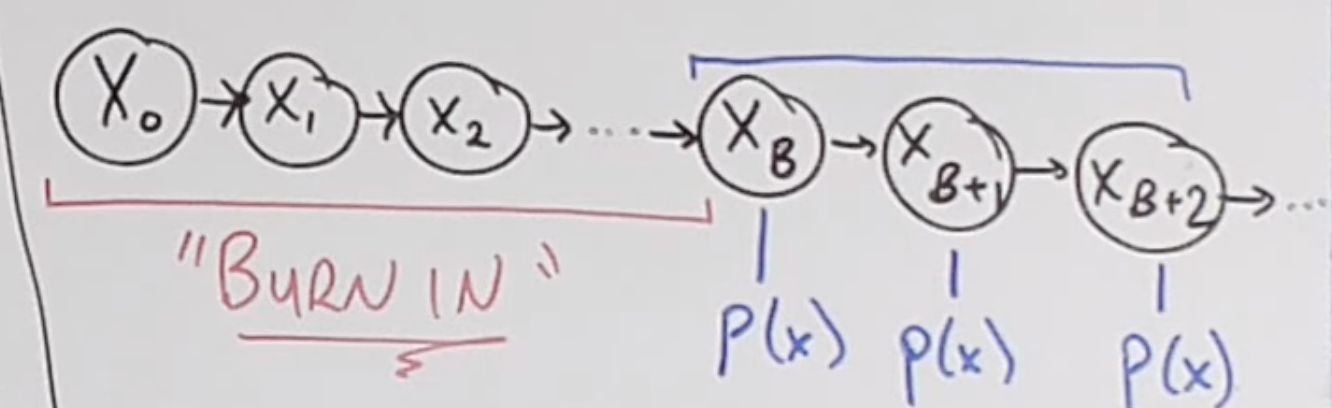 X₀ → X₁ → X₂ → ···· → X_B → X_{B+1} → X_{B+2} → ···
"BURN IN"
p(x) p(x) p(x)